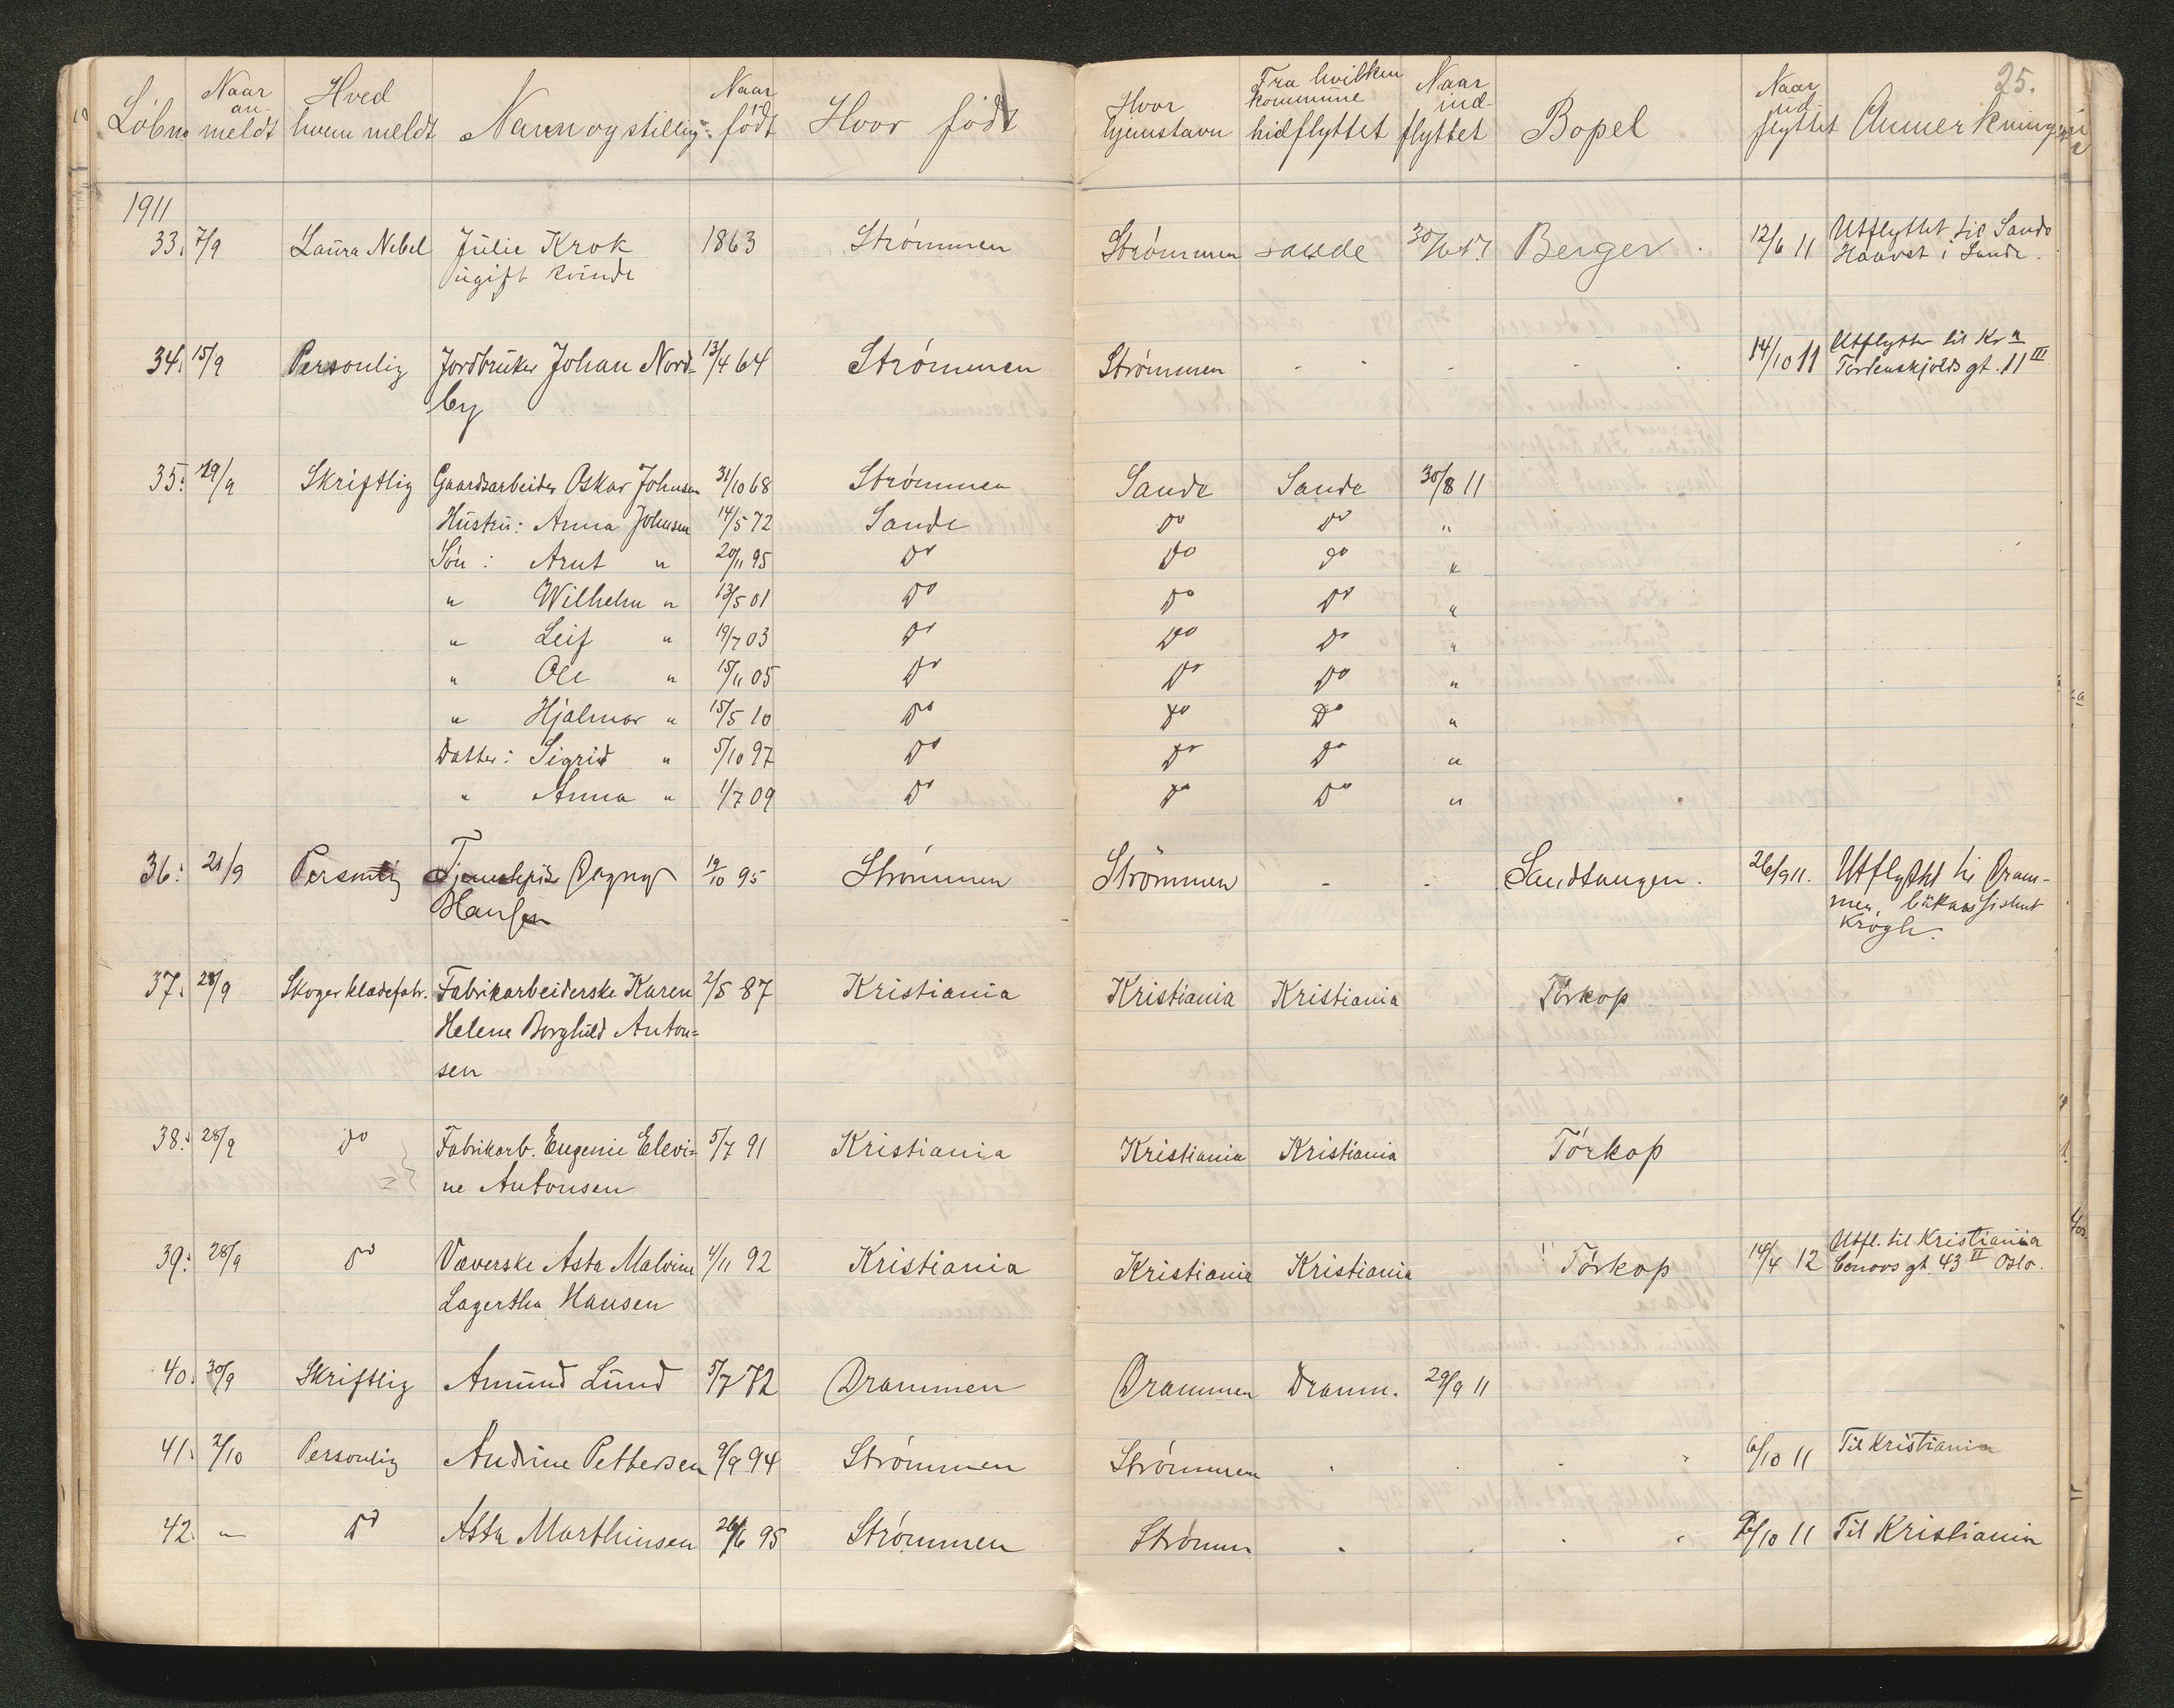 25.
Löbno. Naar an-meldt Hved hvem meldt Navn og stilling. Naar födt Hvor födt Hvor hjemstavn Fra hvilken kommune hidflyttet Naar ind-flyttet Bopel Naar ud-flyttet Anmerkninger
1911
33. 7/9 Laura Nebel Julie Krok 1863 Strömmen Strömmen Sande Berger 12/6 11 Utflyttet til Sande
ugift kvinde i Sande.
34. 15/9 Personlig Jordbruker Johan Nord- 13/4 64 Strömmen Strömmen 14/10 11 Utflytter til Kr a
by Tordenskjolds gt. 11 III
35. 19/9 Skriftlig Gaardsarbeider Oskar Johnsen 31/10 68 Strömmen Sande Sande 30/8 11
Hustru: Anna Johnsen 14/5 72 Sande Do Do "
Sön : Arnt " 20/11 95 Do Do Do "
" Wilhelm " 13/5 01 Do Do Do "
" Leif " 19/7 03 Do Do Do "
" Ole " 15/11 05 Do Do Do "
" Hjalmar " 15/5 10 Do Do Do "
Datter: Sigrid " 5/10 97 Do Do Do "
" Anna " 1/7 09 Do Do Do "
36. 21/9 Personlig Tjenestepike Dagny 19/10 95 Strömmen Strömmen Sandtangen. 26/9 11. Utflyttet til Dram-
Hansen men,
Krogh.
37. 28/9 Skoger kladefabr. Fabrikarbeiderske Karen 2/5 87 Kristiania Kristiania Kristiania Törkop
Helene Borghild Anton-
sen
38. 28/9 Do Fabrikarb. Eugenie Elevi- 5/7 91 Kristiania Kristiania Kristiania Törkop
ne Antonsen
39. 28/9 Do Væverske Asta Malvine 4/11 92 Kristiania Kristiania Kristiania Törkop 14/4 12 Utfl. til Kristiania
Lagertha Hansen gt. 43 II Oslo.
40. 30/9 Skriftlig Amund Lund 5/7 72 Drammen Drammen Dramm. 29/9 11
41. 2/10 Personlig Andrine Pettersen 9/9 94 Strömmen Strömmen 6/10 11 Til Kristiania
42. " Do Asta Marthinsen 26/6 95 Strömmen Strömm 6/10 11 Til Kristiania